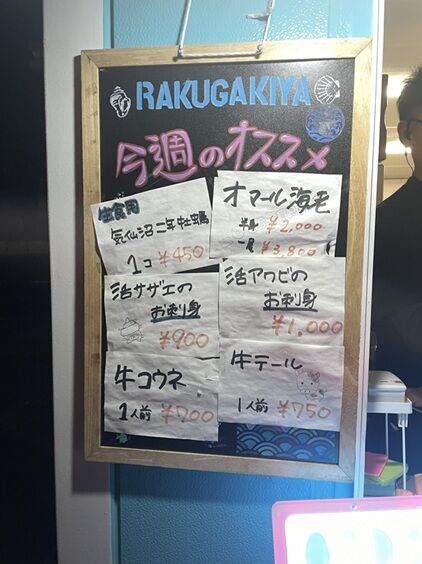 RAKUGAKIYA
今週のオススメ
生食用
気仙沼二年牡蠣
1コ ¥450
オマール海老
半身 ¥2,000
一尾 ¥3,800
活サザエの
お刺身
¥900
活アワビの
お刺身
¥1,000
牛コウネ
1人前 ¥700
牛テール
1人前 ¥750